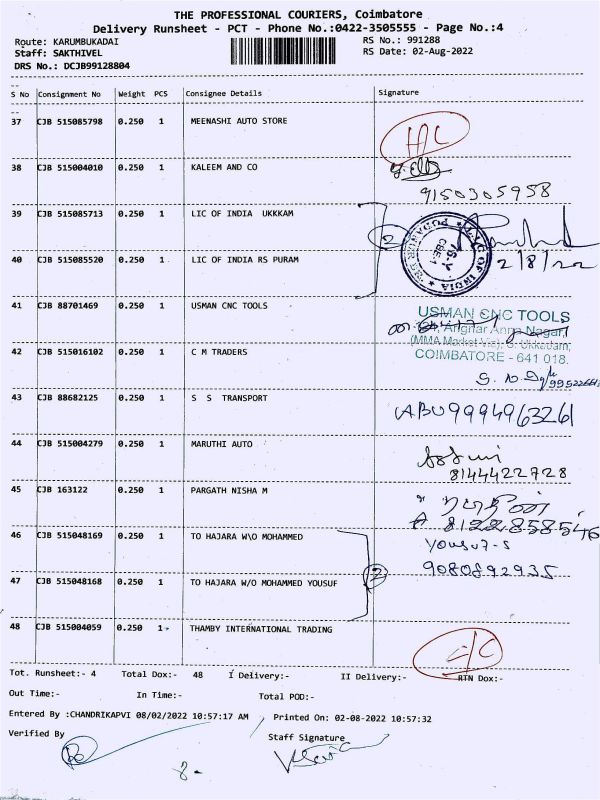 THE PROFESSIONAL COURIERS, Coimbatore
Delivery Runsheet - PCT - Phone No.:0422-3505555 - Page No.:4
Route: KARUMBUKADAI RS No.: 991288
Staff: SAKTHIVEL RS Date: 02-Aug-2022
DRS No.: DCJB99128804
S No Consignment No Weight PCS Consignee Details Signature
37 CJB 515085798 0.250 1 MEENASHI AUTO STORE
38 CJB 515004010 0.250 1 KALEEM AND CO
9150305958
39 CJB 515085713 0.250 1 LIC OF INDIA UKKKAM
2
40 CJB 515085520 0.250 1 LIC OF INDIA RS PURAM
2/8/22
41 CJB 88701469 0.250 1 USMAN CNC TOOLS
USMAN CNC TOOLS
Nagar,
(MMA Market S. Ukkadam,
COIMBATORE - 641 018.
42 CJB 515016102 0.250 1 C M TRADERS
43 CJB 88682125 0.250 1 S S TRANSPORT
ABU 9994963261
44 CJB 515004279 0.250 1 MARUTHI AUTO
8144422728
45 CJB 163122 0.250 1 PARGATH NISHA M
46 CJB 515048169 0.250 1 TO HAJARA W\O MOHAMMED
2
9080892935
47 CJB 515048168 0.250 1 TO HAJARA W/O MOHAMMED YOUSUF
48 CJB 515004059 0.250 1 THAMBY INTERNATIONAL TRADING
Tot. Runsheet:- 4 Total Dox:- 48 I Delivery:- II Delivery:- RTN Dox:-
Out Time:- In Time:- Total POD:-
Entered By :CHANDRIKAPVI 08/02/2022 10:57:17 AM Printed On: 02-08-2022 10:57:32
Verified By Staff Signature